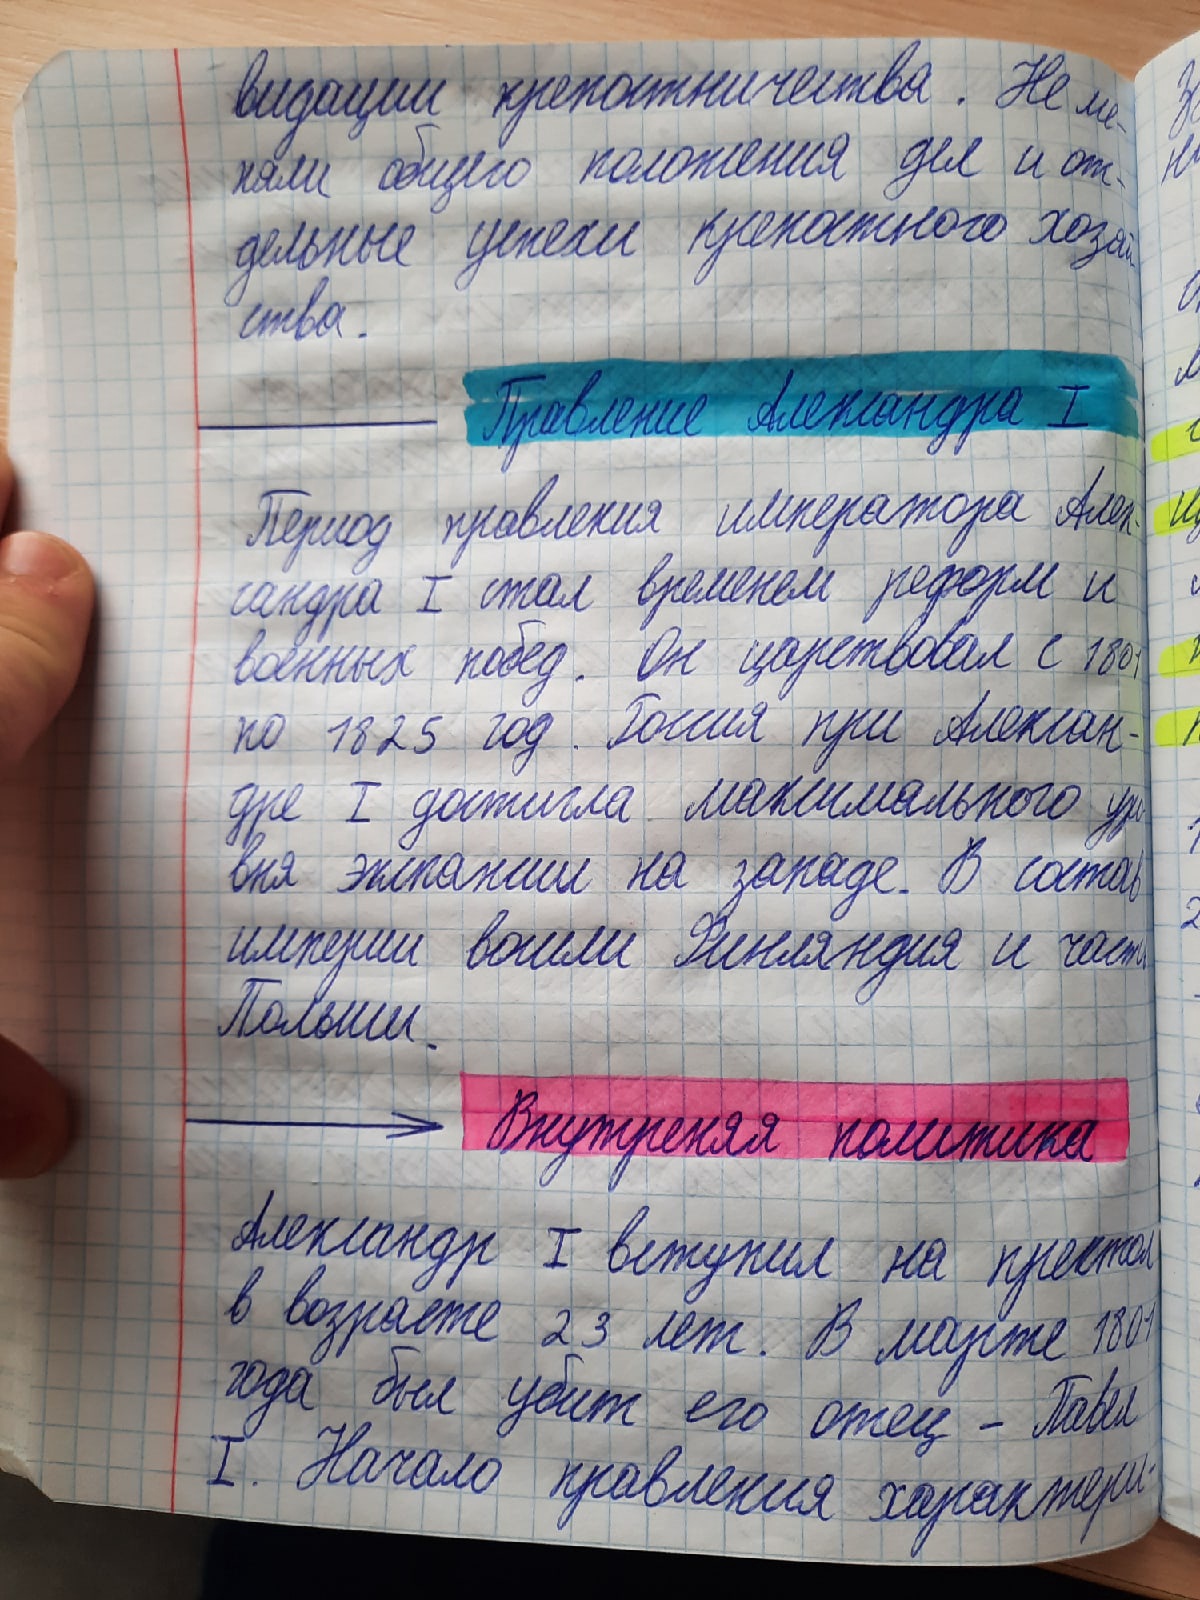 видации крепостничества. Не ме-
няли общего положения дел и от-
дельные успехи крепостного хозяй-
ства.
Правление Александра I
Период правления императора Алек-
сандра I стал временем реформ и
военных побед. Он царствовал с 1801
по 1825 год. Россия при Алексан-
дре I достигла максимального уро-
вня экспансии на западе. В состав
империи вошли Финляндия и часть
Польши.
Внутреняя политика
Александр I вступил на престол
в возрасте 23 лет. В марте 1801
года был убит его отец - Павел
I. Начало правления характери-